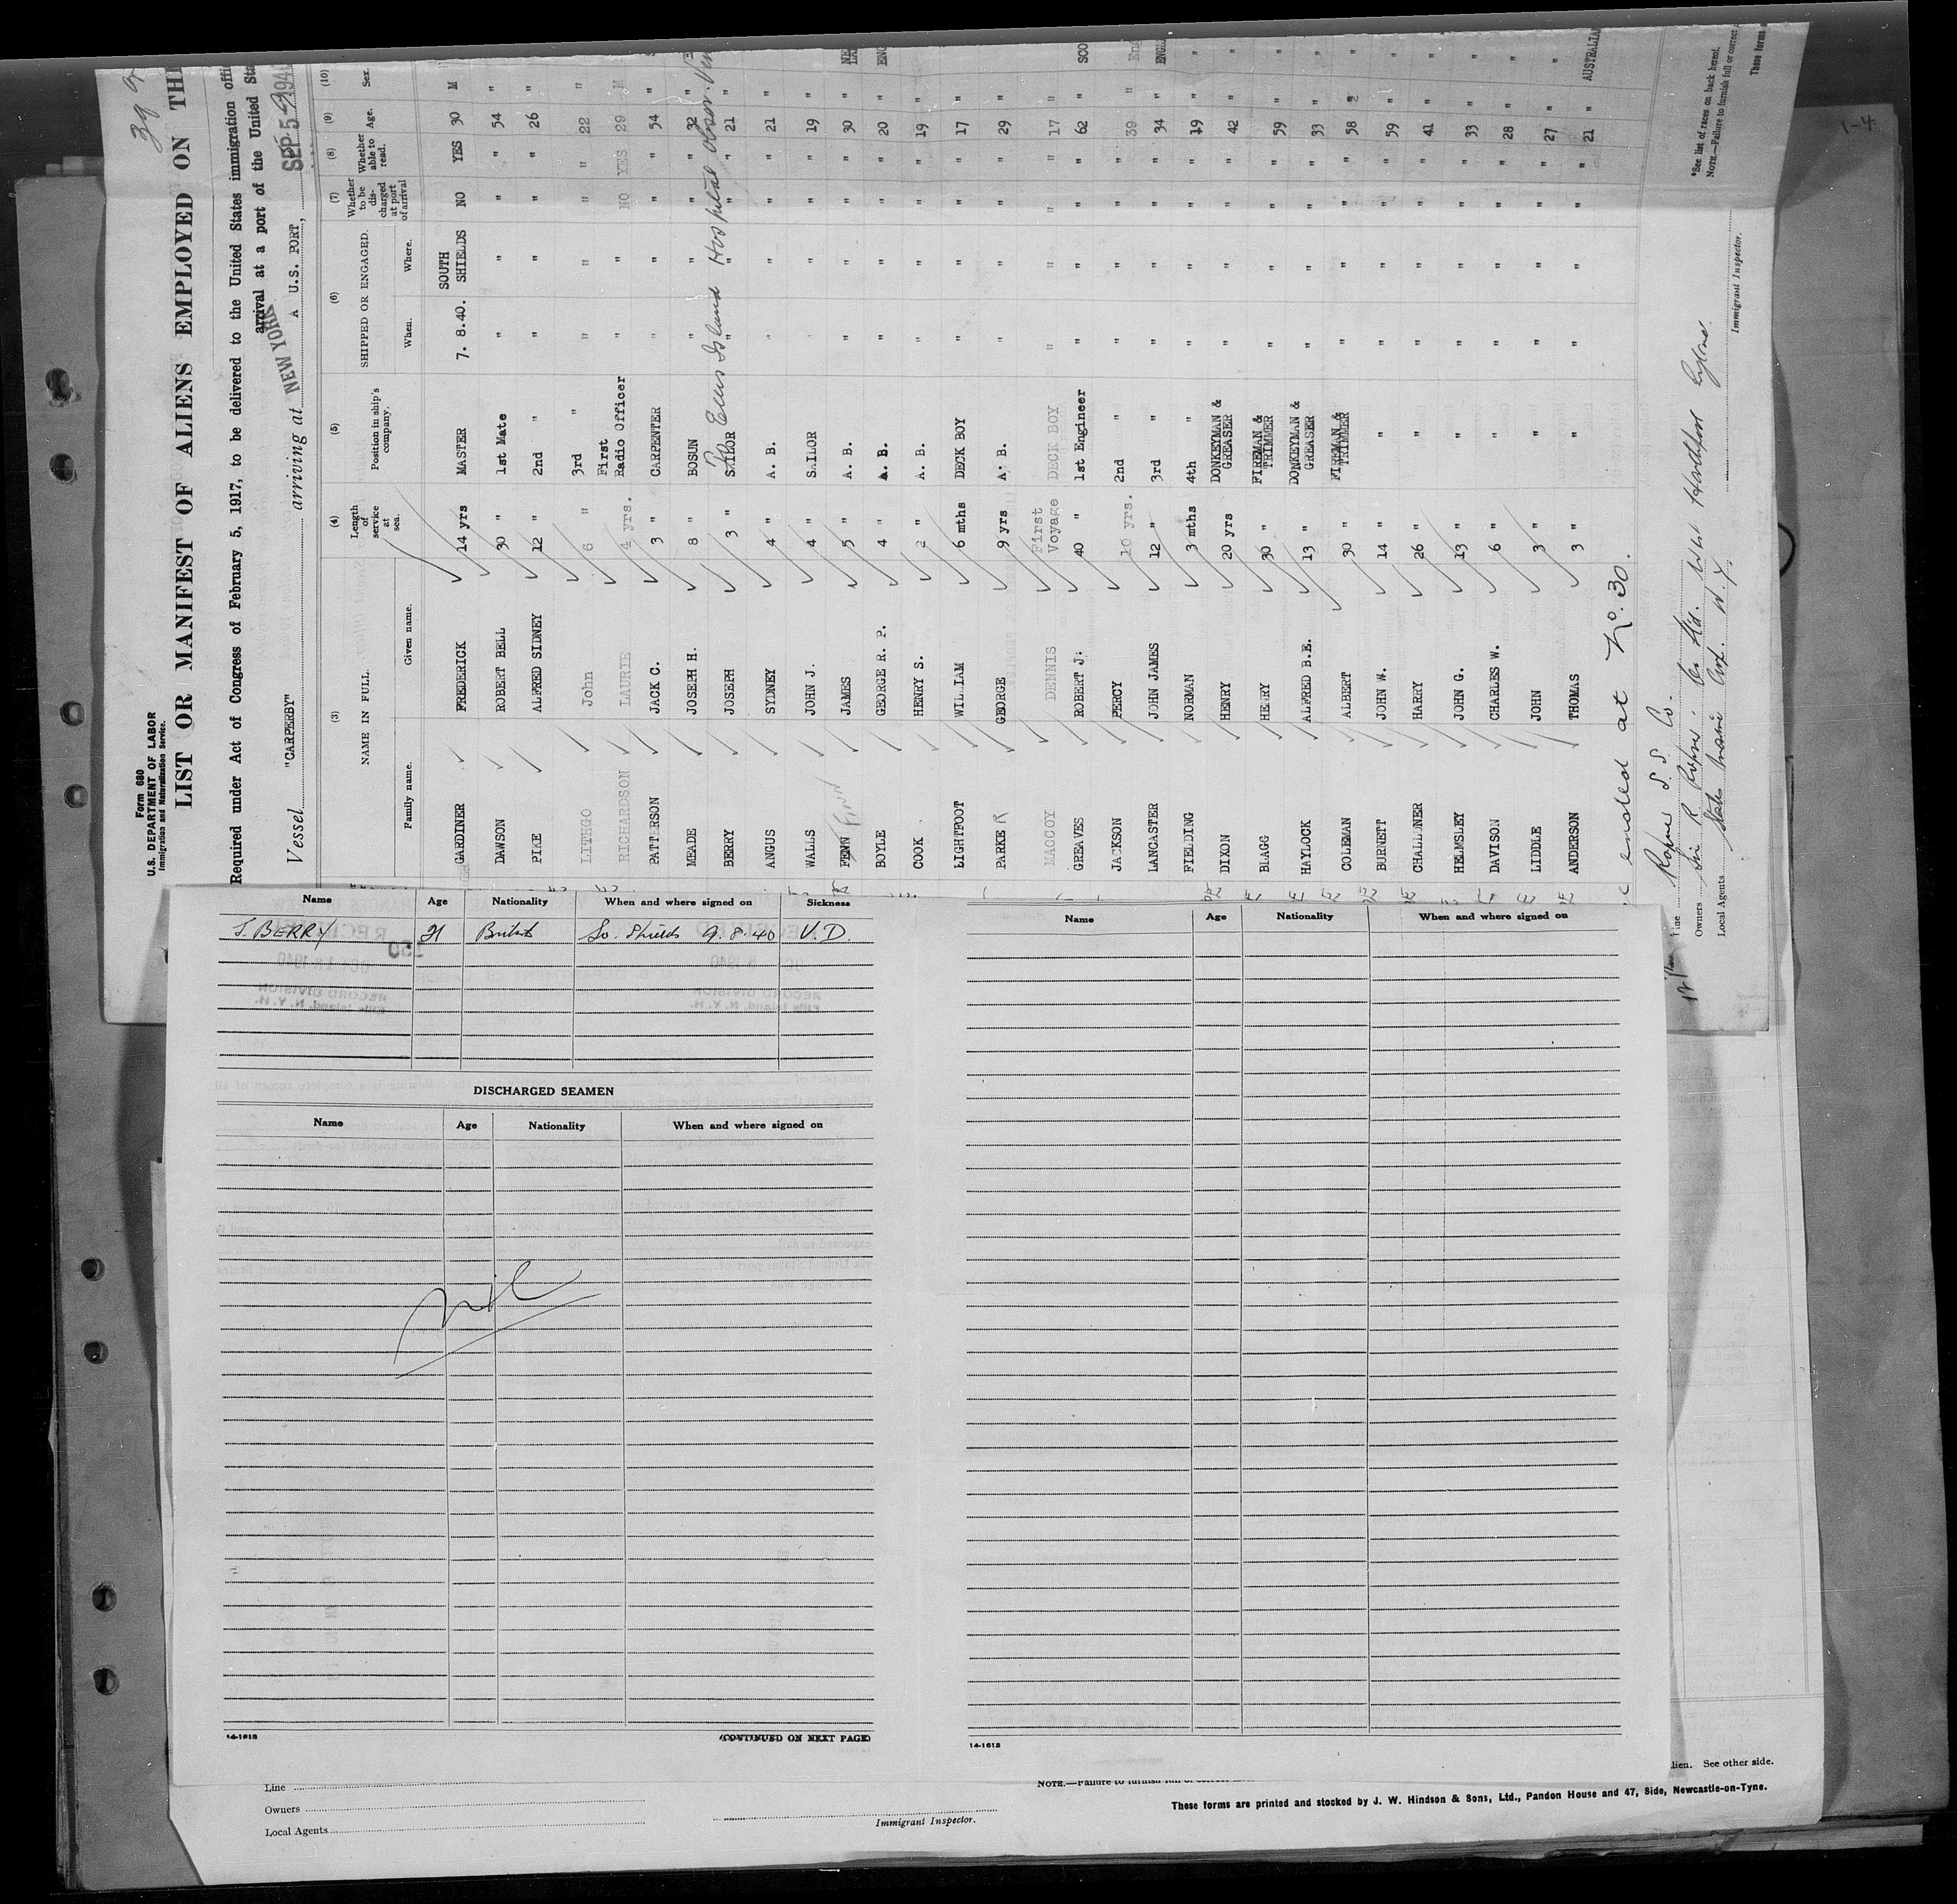 Form 680
U.S. DEPARTMENT OF LABOR
Immigration and Naturalization Service.
LIST OR MANIFEST OF ALIENS EMPLOYED ON TH
Required under Act of Congress of February 5, 1917, to be delivered to the United States immigration offi
arrival at a port of the United Sta
Vessel "CARPERBY" arriving at NEW YORK A U.S. PORT, SEP 5 - 1940
(3) (4) (5) (6) (7) (8) (9) (10)
NAME IN FULL Length of service at sea. Position in ship's company. SHIPPED OR ENGAGED. Whether to be discharged at port of arrival Whether able to read. Age. Sex.
Family name. Given name. When. Where.
GARDINER FREDERICK 14 yrs MASTER 7. 8.40. SOUTH SHIELDS NO YES 30 M
DAWSON ROBERT BELL 30 " 1st Mate " " " " 54 "
PIKE ALFRED SIDNEY 12 " 2nd " " " " " 26 "
LITHGO John 6 " 3rd " " " " " 22 "
RICHARDSON LAURIE 4 yrs. First Radio Officer " " NO YES 29 M
PATTERSON JACK C. 3 " CARPENTER " " " " 54 "
MEADE JOSEPH H. 8 " BOSUN " " " " 32 "
BERRY JOSEPH 3 " SAILOR " " " " 21 "
To Ellis Island Hospital
ANGUS SYDNEY 4 " A. B. " " " " 21 "
WALLS JOHN J. 4 " SAILOR " " " " 19 "
FENN Finn JAMES 5 " A. B. " " " " 30 "
BOYLE GEORGE R. P. 4 " A. B. " " " " 20 "
COOK HENRY S. 2 " A. B. " " " " 19 "
LIGHTFOOT WILLIAM 6 mths DECK BOY " " " " 17 "
PARKER GEORGE 9 yrs A. B. " " " " 29 "
MACCOY DENNIS First Voyage DECK BOY " " " " 17 "
GREAVES ROBERT J. 40 " 1st Engineer " " " " 62 " SCO
JACKSON PERCY 10 yrs. 2nd " " " " " 39 " Eng
LANCASTER JOHN JAMES 12 " 3rd " " " " " 34 " ENGL
FIELDING NORMAN 3 mths 4th " " " " " 19 " "
DIXON HENRY 20 yrs DONKEYMAN & GREASER " " " " 42 " "
BLAGG HENRY 30 " FIREMAN & TRIMMER " " " " 59 " "
HAYLOCK ALFRED B.E. 13 " DONKEYMAN & GREASER " " " " 33 " "
COLEMAN ALBERT 30 " FIREMAN & TRIMMER " " " " 58 " "
BURNETT JOHN W. 14 " " " " " " 59 " "
CHALLONER HARRY 26 " " " " " " 41 " "
HELMSLEY JOHN G. 13 " " " " " " 33 " "
DAVISON CHARLES W. 6 " " " " " " 28 " "
LIDDLE JOHN 3 " " " " " " 27 " "
ANDERSON THOMAS 3 " " " " " " 21 " AUSTRALIA
ended at No. 30.
Line Ropner S. S. Co.
Owners Sir R Ropner & Co Ltd. West Hartlepool
Local Agents States Marine Corp. N.Y.
Immigrant Inspector.
*See list of races on back hereof.
NOTE.—Failure to furnish full or correct
These forms
Name Age Nationality When and where signed on Sickness
J. BERRY 21 British So. Shields 9.8.40 V.D.
DISCHARGED SEAMEN
Name Age Nationality When and where signed on
Nil
14-1613 (CONTINUED ON NEXT PAGE)
Name Age Nationality When and where signed on
14-1613
Line
Owners
Local Agents
Immigrant Inspector.
lien. See other side.
These forms are printed and stocked by J. W. Hindson & Sons, Ltd., Pandon House and 47, Side, Newcastle-on-Tyne.